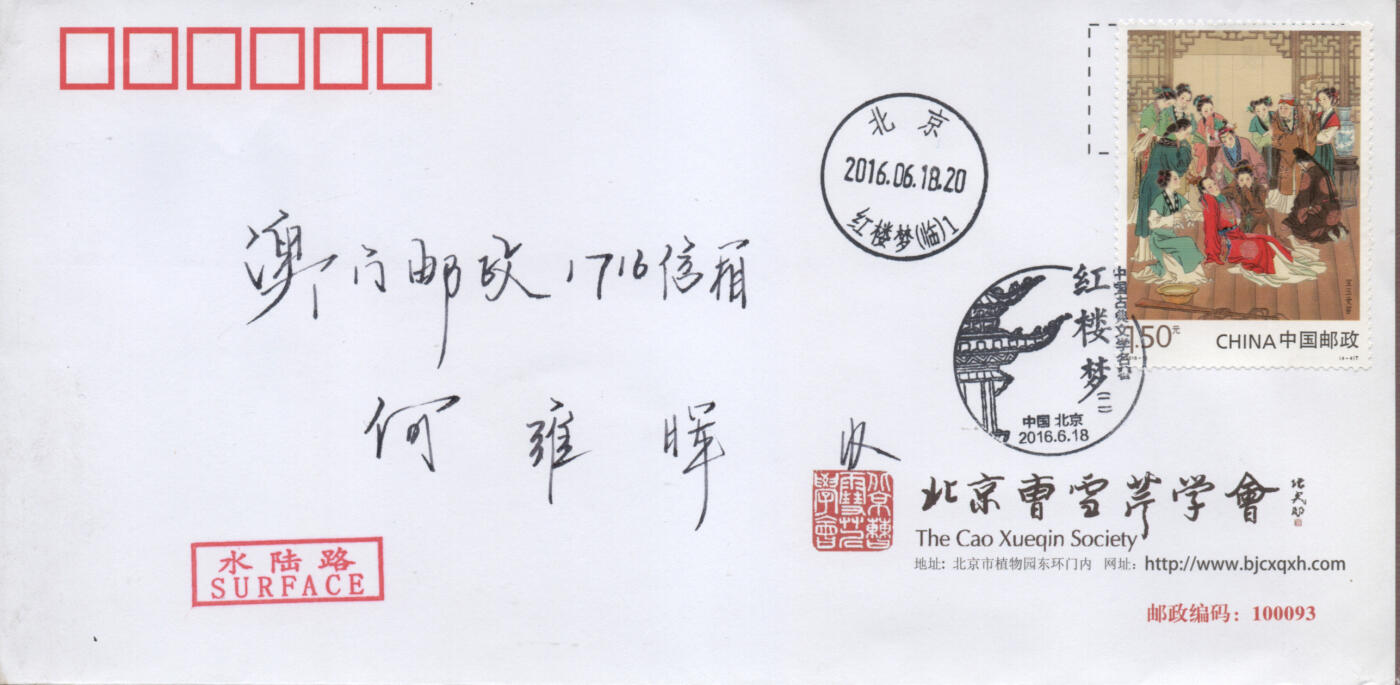 北京
2016.06.18.20
红楼梦(临)1
1.50元
CHINA中国邮政
中国古典文学名著
红楼梦(二)
中国 北京
2016.6.18
澳门邮政1716信箱
何雍晖 收
水陆路
SURFACE
北京曹雪芹学會
北京曹雪芹学會
The Cao Xueqin Society
地址: 北京市植物园东环门内 网址: http://www.bjcxqxh.com
邮政编码: 100093